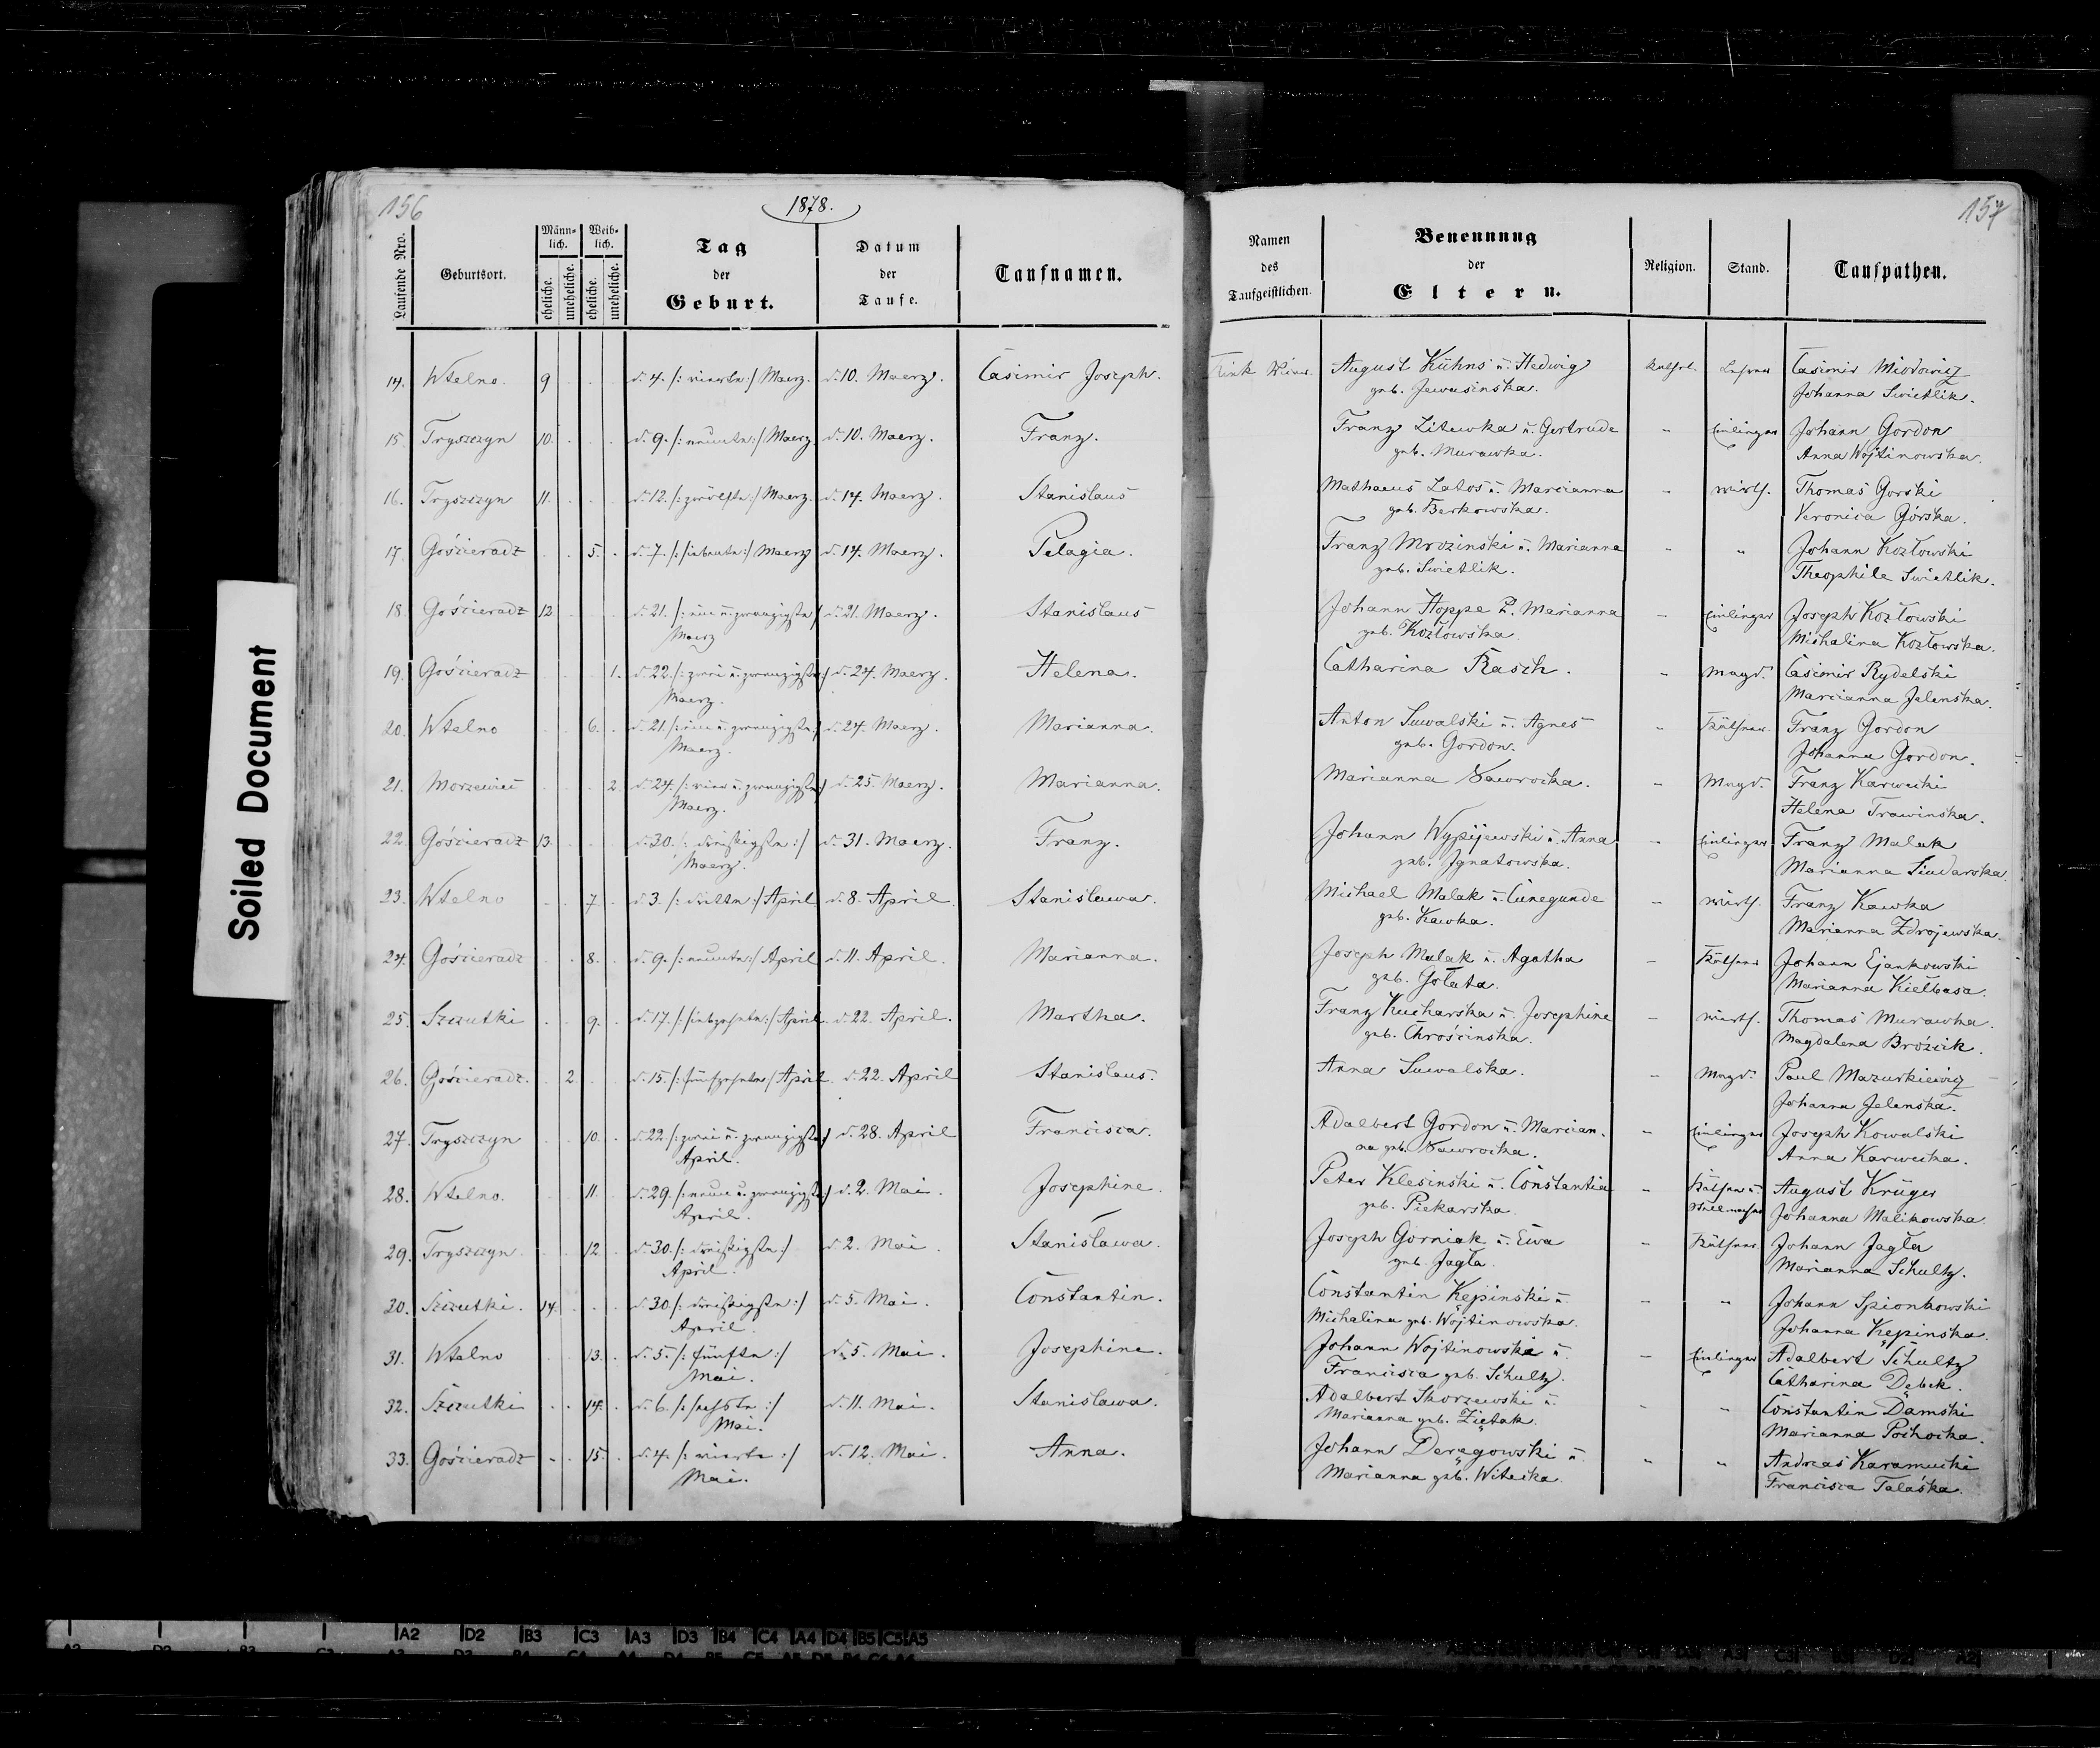 156
1878.
157
Laufende Nro.
Geburtsort.
Männ-
lich.
Weib-
lich.
eheliche.
uneheliche.
eheliche.
uneheliche.
Tag
der
Geburt.
Datum
der
Taufe.
Taufnamen.
Namen
des
Taufgeistlichen.
Benennung
der
Eltern.
Religion.
Stand.
Taufpathen.
14. Wtelno. 9 d. 4. /: vierte :/ Maerz. d. 10. Maerz. Casimir Joseph. August Kühns u. Hedwig Kathol. Lehrer Casimir Miodowicz
geb. Jewasinska. Johanna Swietlik.
15. Tryszczyn 10. d. 9. /: neunte :/ Maerz d. 10. Maerz. Franz. Franz Litewka u. Gertrude " Einlieger Johann Gordon
geb. Murawka. Anna Wojtinowska.
16. Tryszczyn 11. d. 12. /: zwölfte :/ Maerz. d. 14. Maerz. Stanislaus Mathaeus Latos u. Marianna " Wirth. Thomas Gorski
geb. Berkowska. Veronica Górska.
17. Gościeradz 5. d. 7. /: siebente :/ Maerz d. 14. Maerz. Pelagia. Franz Mrozinski u. Marianna " " Johann Kozłowski
geb. Swietlik. Theophile Swietlik.
18. Gościeradz 12 d. 21. /: ein u. zwanzigste :/ d. 21. Maerz. Stanislaus Johann Hoppe u. Marianna - Einlieger Joseph Kozłowski
Maerz geb. Kozłowska. Michalina Kozłowska.
19. Gościeradz 1. d. 22. /: zwei u. zwanzigste :/ d. 24. Maerz. Helena. Catharina Rasch. - Magd. Casimir Rydelski
Maerz. Marianna Jelenska.
20. Wtelno 6. d. 21. /: ein u. zwanzigste :/ d. 24. Maerz. Marianna. Anton Suwalski u. Agnes - Käthner. Franz Gordon
Maerz. geb. Gordon. Johanna Gordon.
21. Morzewiec 2. d. 24. /: vier u. zwanzigste :/ d. 25. Maerz. Marianna. Marianna Nawrocka. - Magd. Franz Karwecki
Maerz. Helena Trawinska.
22. Gościeradz 13. d. 30. /: dreißigste :/ d. 31. Maerz. Franz. Johann Wypijewski u. Anna - Einlieger Franz Malak
Maerz. geb. Ignatowska. Marianna Siudarska.
23. Wtelno 7. d. 3. /: dritte :/ April d. 8. April. Stanisława. Michael Malak u. Cunegunde - Wirth. Franz Kawka
geb. Kawka. Marianna Zdrojewska.
24. Gościeradz 8. d. 9. /: neunte :/ April d. 11. April. Marianna. Joseph Malak u. Agatha - Käthner Johann Ejankowski
geb. Gołata. Marianna Kiełbasa.
25. Szczutki 9. d. 17. /: siebzehnte :/ April. d. 22. April. Martha. Franz Kucharska u. Josephine - Wirth. Thomas Murawka.
geb. Chrościnska. Magdalena Brózik.
26. Gościeradz. 2. d. 15. /: fünfzehnte :/ April d. 22. April Stanislaus. Anna Suwalska. - Magd. Paul Mazurkiewicz
Johanna Jelenska.
27. Tryszczyn 10. d. 22. /: zwei u. zwanzigste :/ d. 28. April Francisca. Adalbert Gordon u. Marcian- - Einlieger Joseph Kowalski
April. na geb. Nawrocka. Anna Karwecka.
28. Wtelno. 11. d. 29. /: neun u. zwanzigste :/ d. 2. Mai. Josephine. Peter Klesinski u. Constantia - Käthner u. August Krüger
April. geb. Piekarska. Stellmacher Johanna Malikowska.
29. Tryszczyn. 12 d. 30. /: dreißigste :/ d. 2. Mai. Stanisława. Joseph Gorniak u. Ewa - Käthner. Johann Jagła
April. geb. Jagła. Marianna Schultz.
30. Szczutki. 14. d. 30. /: dreißigste :/ d. 5. Mai. Constantin. Constantin Kępinski u. - " Johann Spionkowski
April. Michalina geb. Wojtinowska. Johanna Kępinska.
31. Wtelno 13. d. 5. /: fünfte :/ d. 5. Mai. Josephine. Johann Wojtinowski u. - Einlieger Adalbert Schultz
Mai. Francisca geb. Schultz. Catharina Dębek.
32. Szczutki 14. d. 6. /: sechste :/ d. 11. Mai. Stanisława. Adalbert Skorzewski u. - " Constantin Damski
Mai. Marianna geb. Ziętak. Marianna Pochocka.
33. Gościeradz 15. d. 4. /: vierte :/ d. 12. Mai. Anna. Johann Deręgowski u. " " Andreas Karamucki
Mai. Marianna geb. Witecka. Francisca Talaśka.
Soiled Document
A2 D2 B3 C3 A3 D3 B4 C4 A4 D4 B5 C5 A5